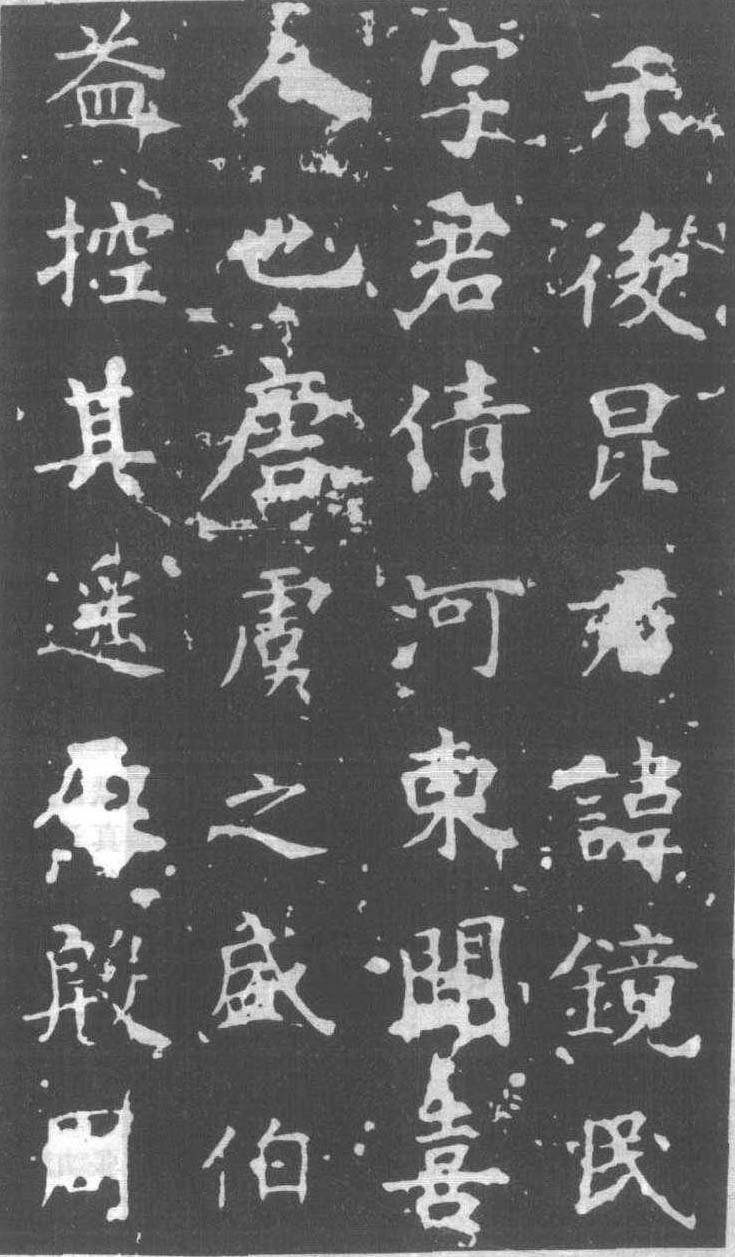 示後昆君諱鏡民
字君倩河東聞喜
人也唐虞之盛伯
益控其遥源殷周